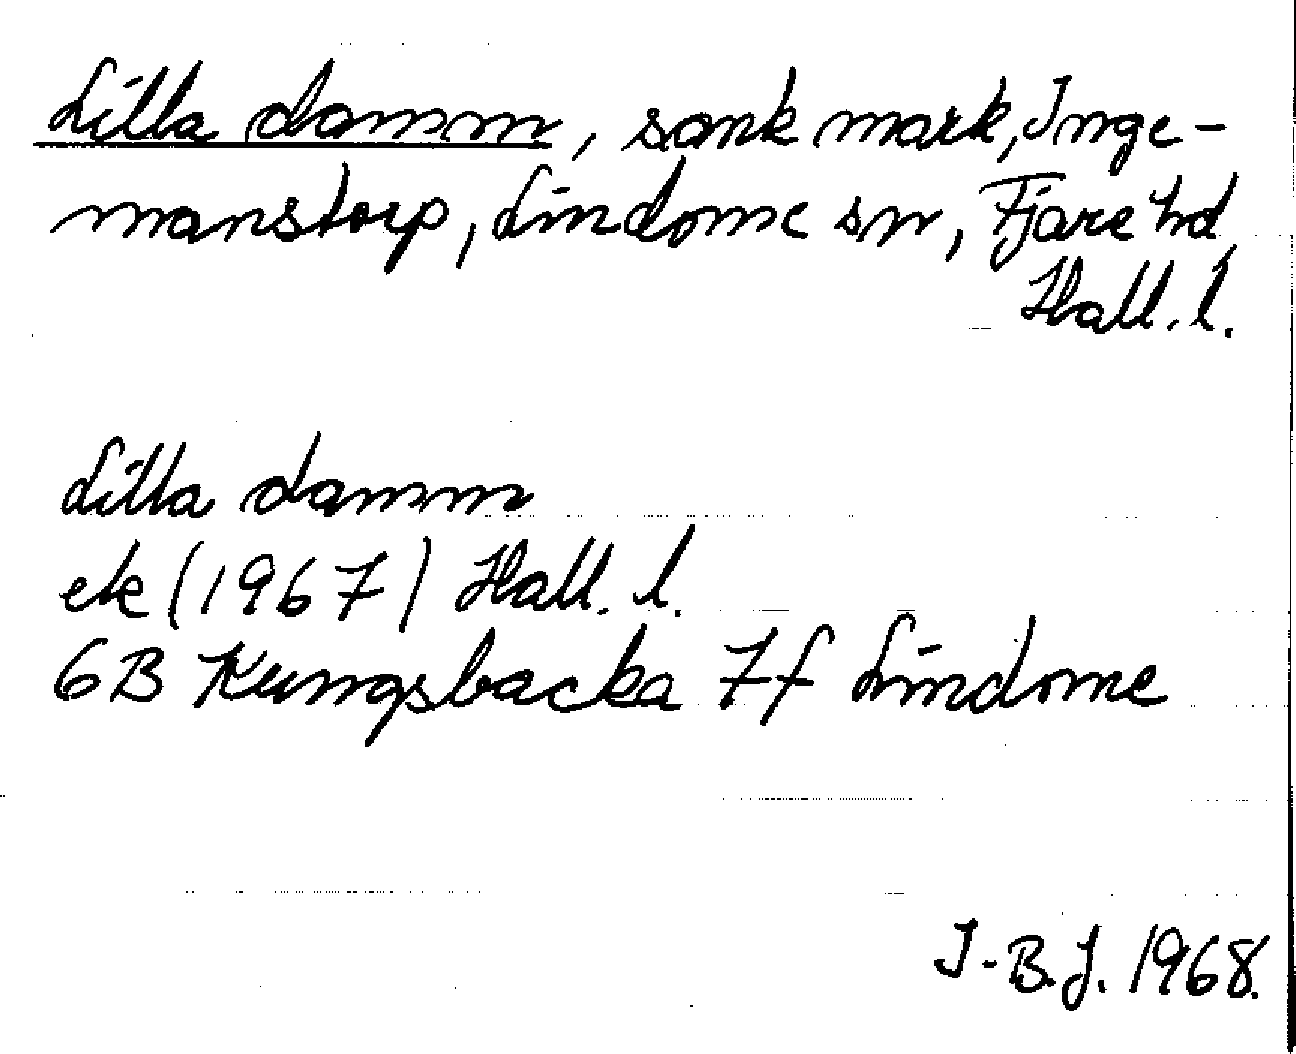 Lilla damm, sank mark, Inge-
manstorp, Lindome sn, Fjäre hd
Hall. l.
Lilla damm
ek (1967) Hall. l.
6B Kungsbacka 7f Lindome
I-B.J. 1968.